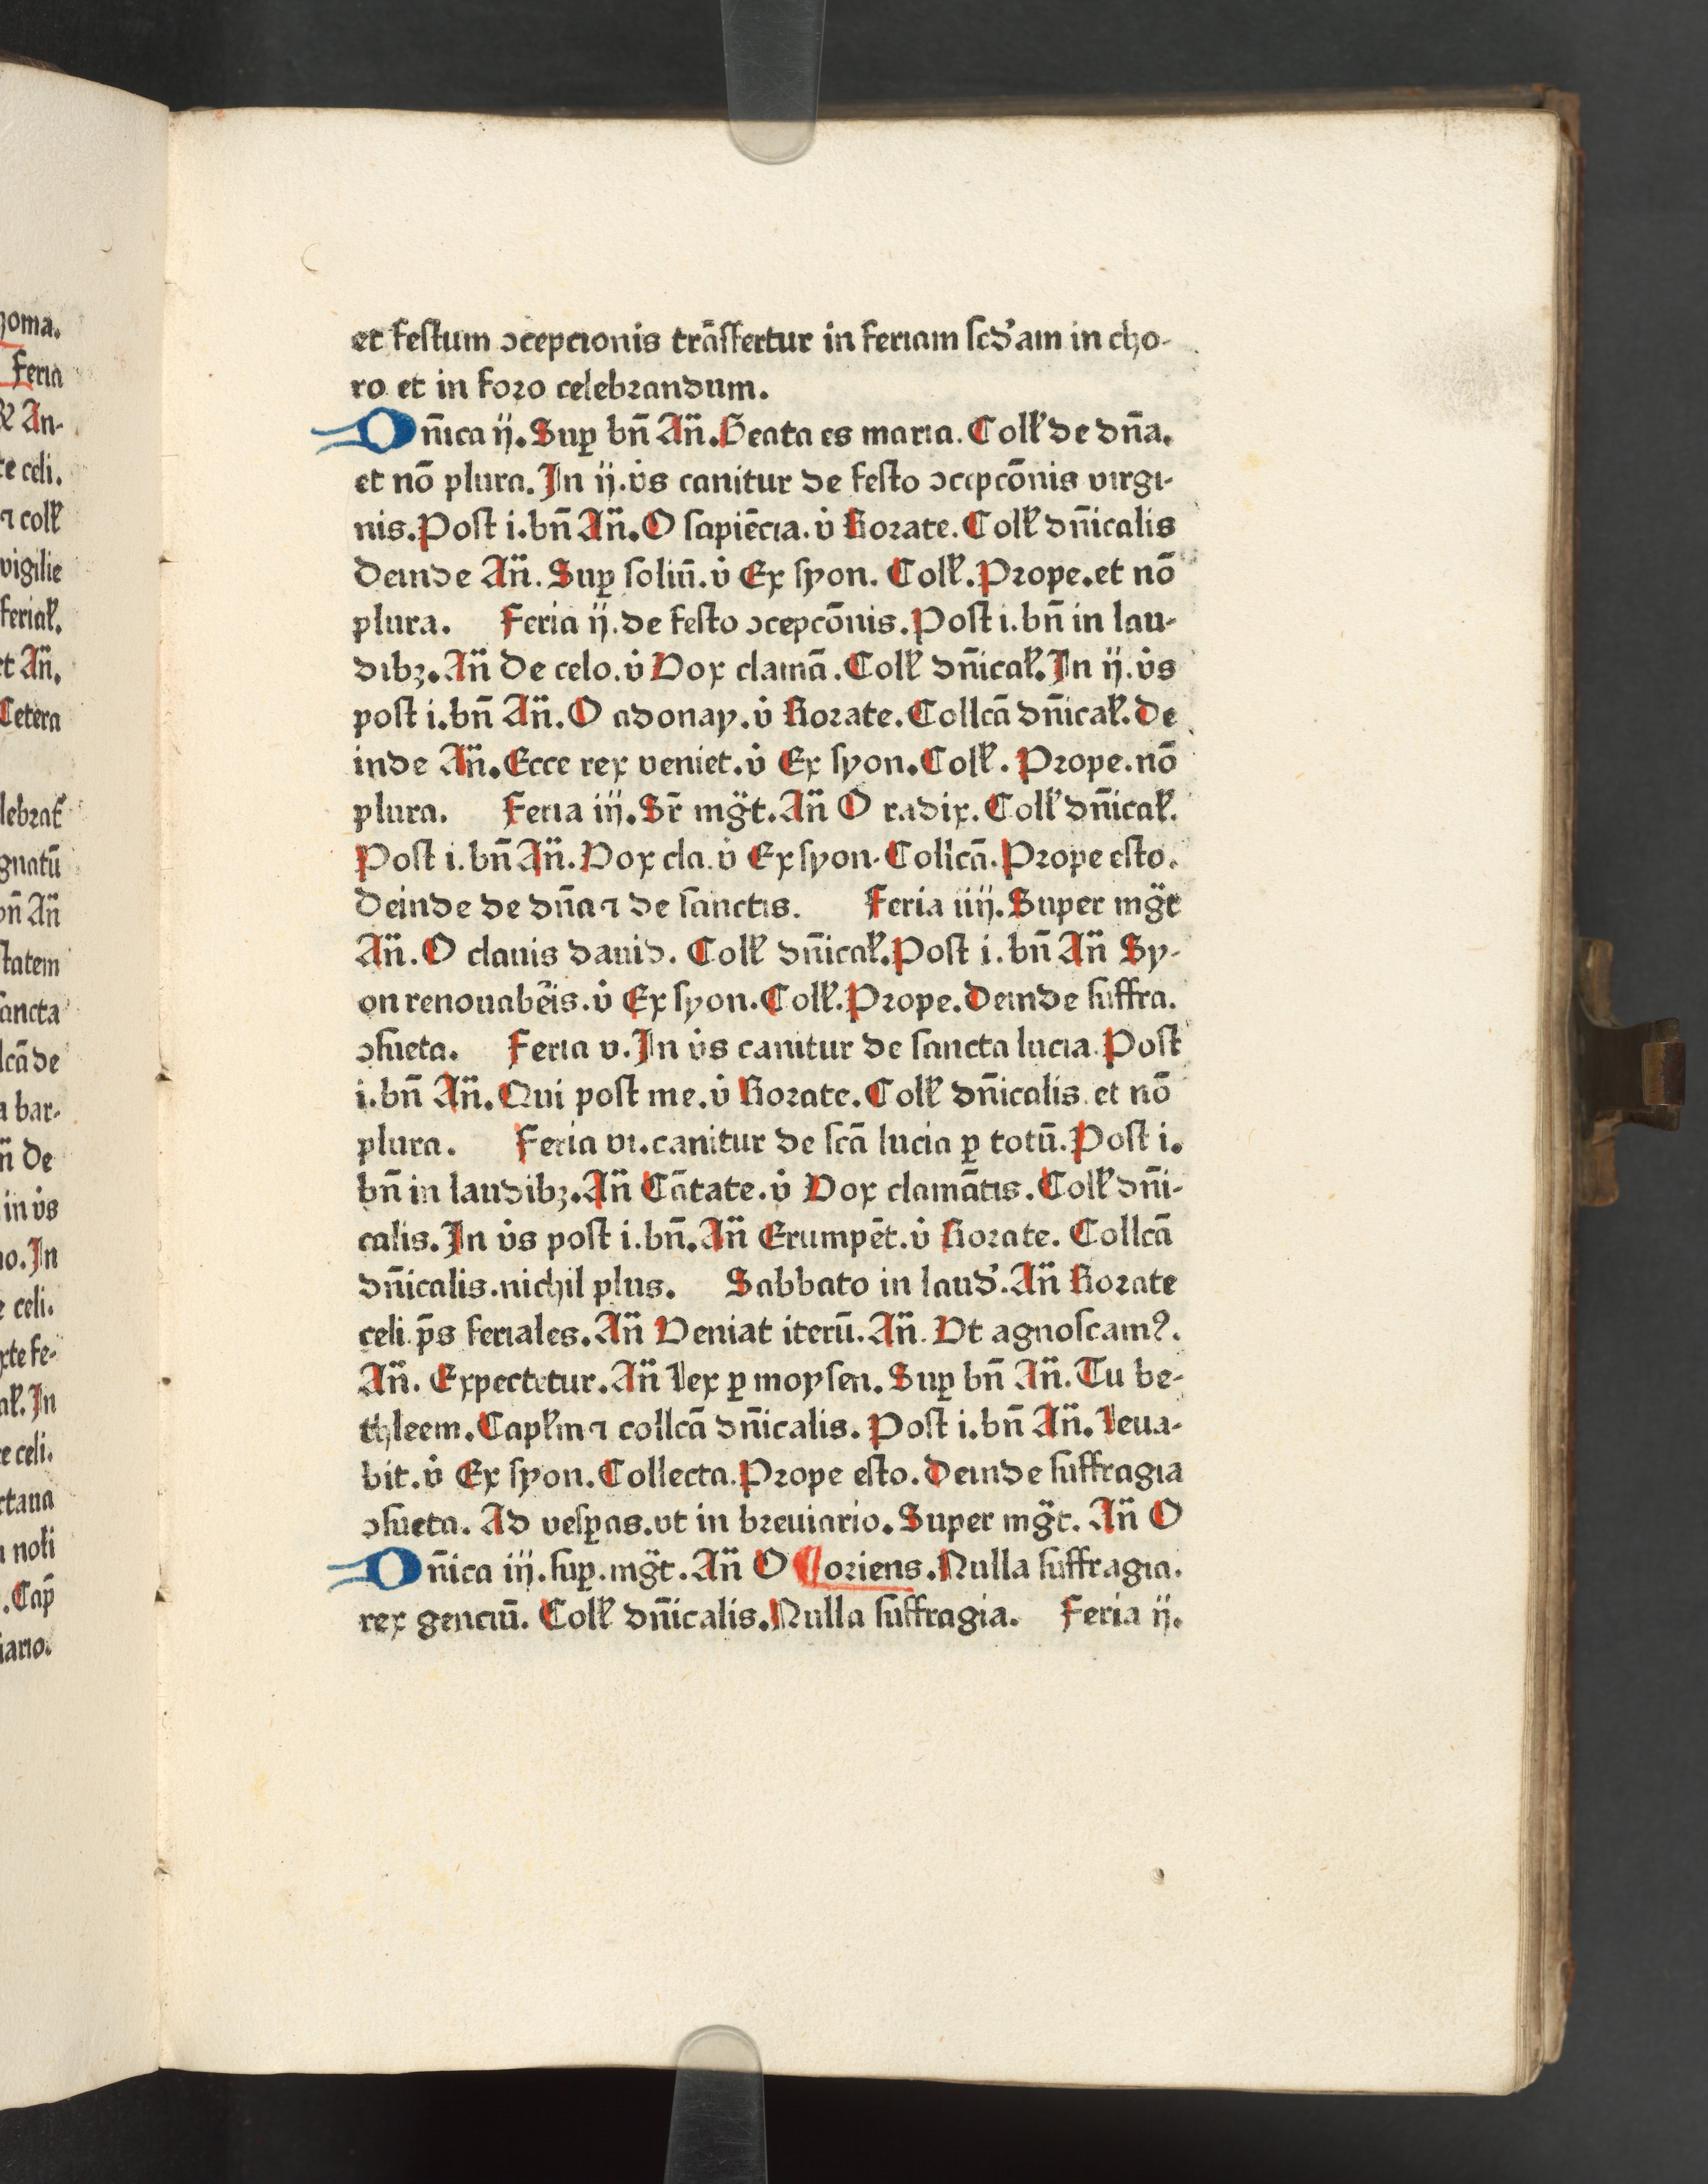 et festum ɔcepcionis trāsfertur in feriam scd'am in cho-
ro et in foro celebrandum.
Dn̄ica ij. Suꝑ bn̄ An̄. Beata es maria. Coll' de dn̄a.
et nō plura. In ij. v̇s canitur de festo ɔcepcōnis virgi-
nis. Post i. bn̄ An̄. O sapiēcia. v̇ Rorate. Coll' dn̄icalis
deinde An̄. Suꝑ soliū. v̇ Ex syon. Coll'. Prope. et nō
plura. Feria ij. de festo ɔcepcōnis. Post i. bn̄ in lau-
dibꝫ. An̄ De celo. v̇ Vox clamā. Coll' dn̄ical'. In ij. v̇s
post i. bn̄ An̄. O adonay. v̇ Rorate. Collcā dn̄ical'. De
inde An̄. Ecce rex veniet. v̇ Ex syon. Coll'. Prope. nō
plura. Feria iij. Sr̄ mg̈t. An̄ O radix. Coll' dn̄ical'.
Post i. bn̄ An̄. Vox cla. v̇ Ex syon. Collcā. Prope esto.
Deinde de dn̄a ⁊ de sanctis. Feria iiij. Super mg̈t
An̄. O clauis dauid. Coll' dn̄ical'. Post i. bn̄ An̄ Sy-
on renouabēis. v̇ Ex syon. Coll'. Prope. Deinde suffra.
ɔsueta. Feria v. In v̇s canitur de sancta lucia. Post
i. bn̄ An̄. Qui post me. v̇ Rorate. Coll' dn̄icalis. et nō
plura. Feria vi. canitur de scā lucia ꝑ totū. Post i.
bn̄ in laudibꝫ. An̄ Cātate. v̇ Vox clamātis. Coll' dn̄i-
calis. In v̇s post i. bn̄. An̄ Erumpēt. v̇ Rorate. Collcā
dn̄icalis. nichil plus. Sabbato in laud'. An̄ Rorate
celi. p̄s feriales. An̄ Veniat iterū. An̄. Vt agnoscamꝰ.
An̄. Expectetur. An̄ Lex ꝑ moysen. Suꝑ bn̄ An̄. Tu be-
thleem. Capl'm ⁊ collcā dn̄icalis. Post i. bn̄ An̄. Leua-
bit. v̇ Ex syon. Collecta. Prope esto. Deinde suffragia
ɔsueta. Ad vesꝑas. vt in breuiario. Super mg̈t. An̄ O
Dn̄ica iij. suꝑ. mg̈t. An̄ O ¶ oriens. Nulla suffragia.
rex genciū. Coll' dn̄icalis. Nulla suffragia. Feria ij.